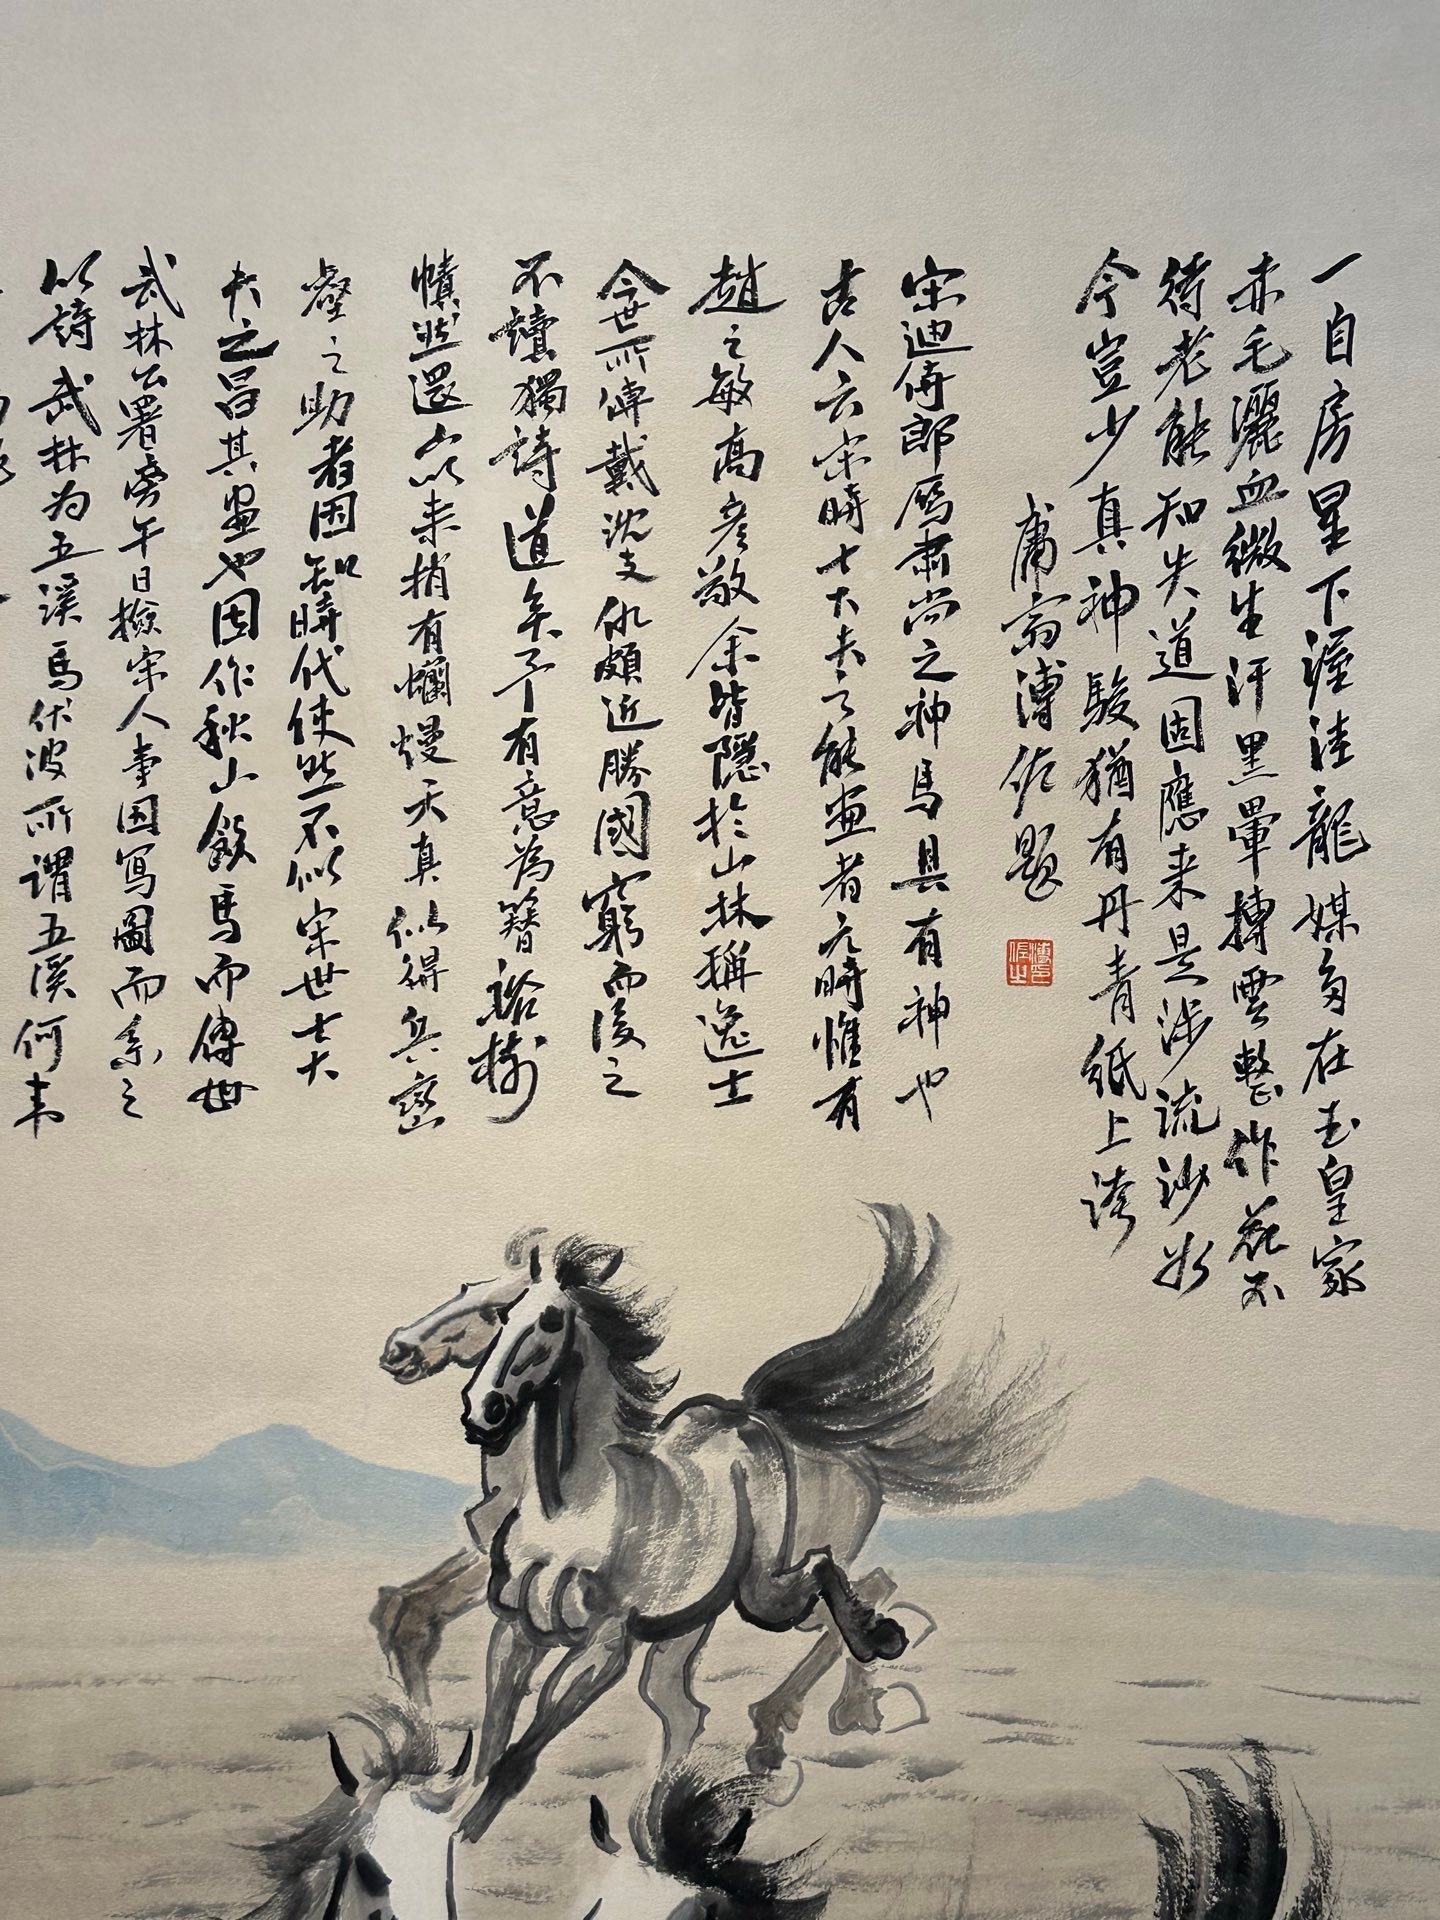 一自房星下渥洼龍媒多在玉皇家
赤毛灑血微生汗黑暈摶雲整作花不
待老能知失道固應来是涉流沙於
今豈少真神駿猶有丹青紙上誇
庸翁溥佐題
宋迪侍郎為肅尚之神馬具有神也
古人云宋時士大夫之能畫者元時惟有
趙之敏高彦敬余皆隱於山林稱逸士
今世所傳戴沈文仇頗近勝國窮而後之
不讀獨詩道矣予有意為
慎然還以来稍有爛熳天真似得兵巒
壑之助者因知時代使然不似宋世士大
夫之昌其畫也因作秋山飲馬而傳世
武林公署旁午日撿宋人事因寫圖而系之
以詩武林为五溪馬伏波所謂五溪何